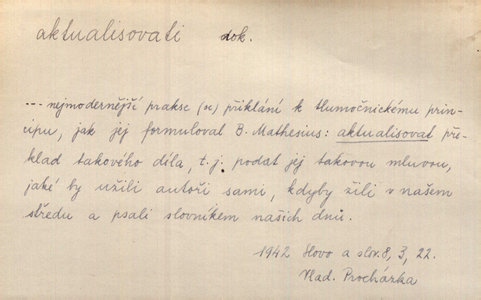 aktualisovati dok.
... nejmodernější prakse (se) přiklání k tlumočnickému prin-
cipu, jak jej formuloval B. Mathesius: aktualisovat pře-
klad takového díla, t. j. podat jej takovou mluvou,
jaké by užili autoři sami, kdyby žili v našem
středu a psali slovníkem našich dnů.
1942 Slovo a slov. 8, 3, 22.
Vlad. Procházka